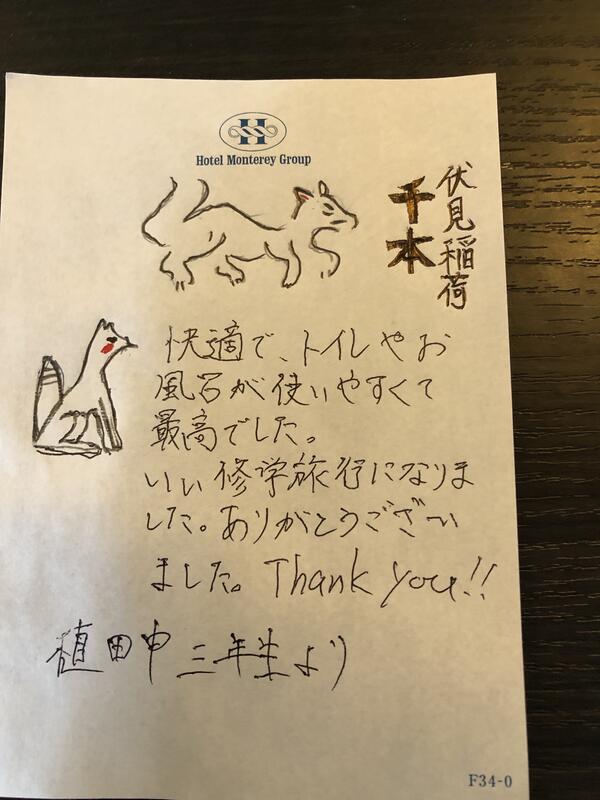 Hotel Monterey Group
伏見稲荷
千本
快適で、トイレやお
風呂が使いやすくて
最高でした。
いい修学旅行になりま
した。ありがとうござい
ました。Thank you!!
植田中三年生より
F34-0